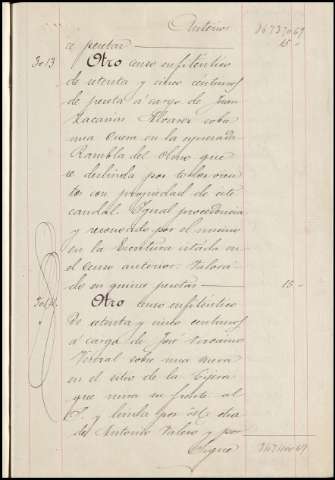 Anterior 367370.69
ce pesetas 15-
3º13 Otro censo enfiteutico
de setenta y cinco centimos
de peseta á cargo de Juan
Alvarez sobre
una Cueva en la espresada
Rambla del Olmo que
se deslinda por todos vien
tos con propiedad de este
caudal. Igual procedencia
y reconocido por el mismo
en la Escritura citada en
el censo anterior: Valora-
do en quince pesetas 15-
Otro censo enfiteutico
de setenta y cinco centimos
á cargo de José
sobre una cueva
en el sitio de la
que mira su frente al
S. y linda por
de Antonio Valero y por
Sigue